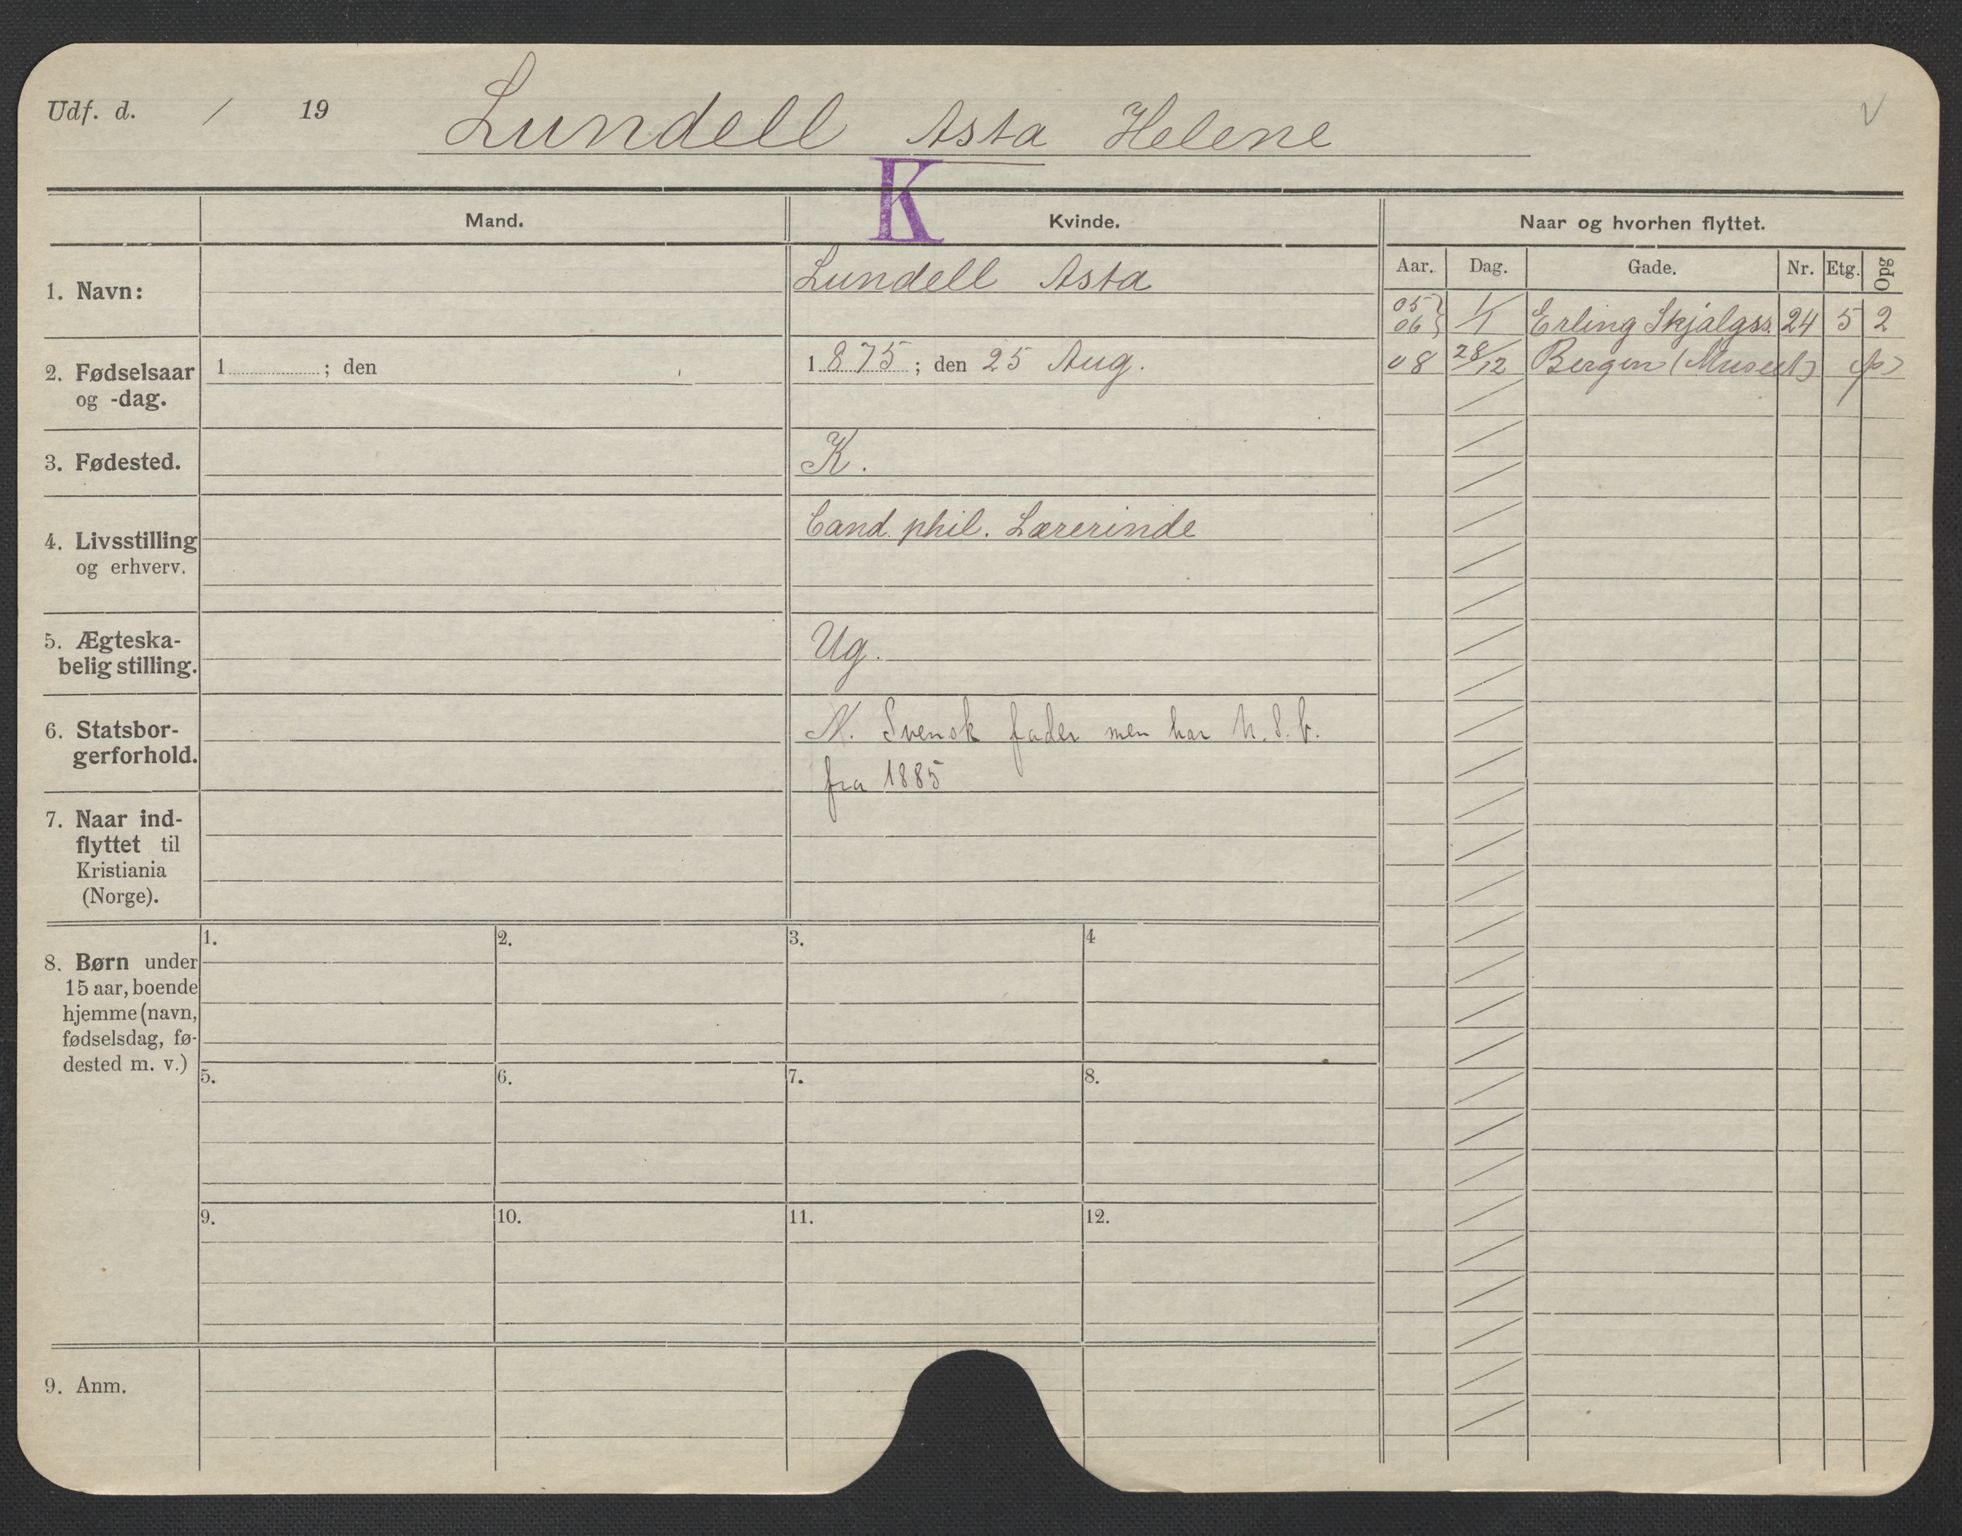 Udf. d. / 19 Lundell Asta Helene
K
Mand. Kvinde. Naar og hvorhen flyttet.
Aar. Dag. Gade. Nr. Etg. Opg
1. Navn: Lundell Asta
05 } 06 } 1/1 Erling Skjalgss. 24 5 2
08 28/12 Bergen (Museet)
2. Fødselsaar
og -dag.
1 ; den
1875 ; den 25 Aug.
3. Fødested. K.
4. Livsstilling
og erhverv.
Cand. phil. Lærerinde
5. Ægteska-
belig stilling.
Ug.
6. Statsbor-
gerforhold.
N. Svensk fader men har N. S. b.
fra 1885
7. Naar ind-
flyttet til
Kristiania
(Norge).
8. Børn under
15 aar, boende
hjemme (navn,
fødselsdag, fø-
dested m. v.)
1. 2. 3. 4
5. 6. 7. 8.
9. 10. 11. 12.
9. Anm.